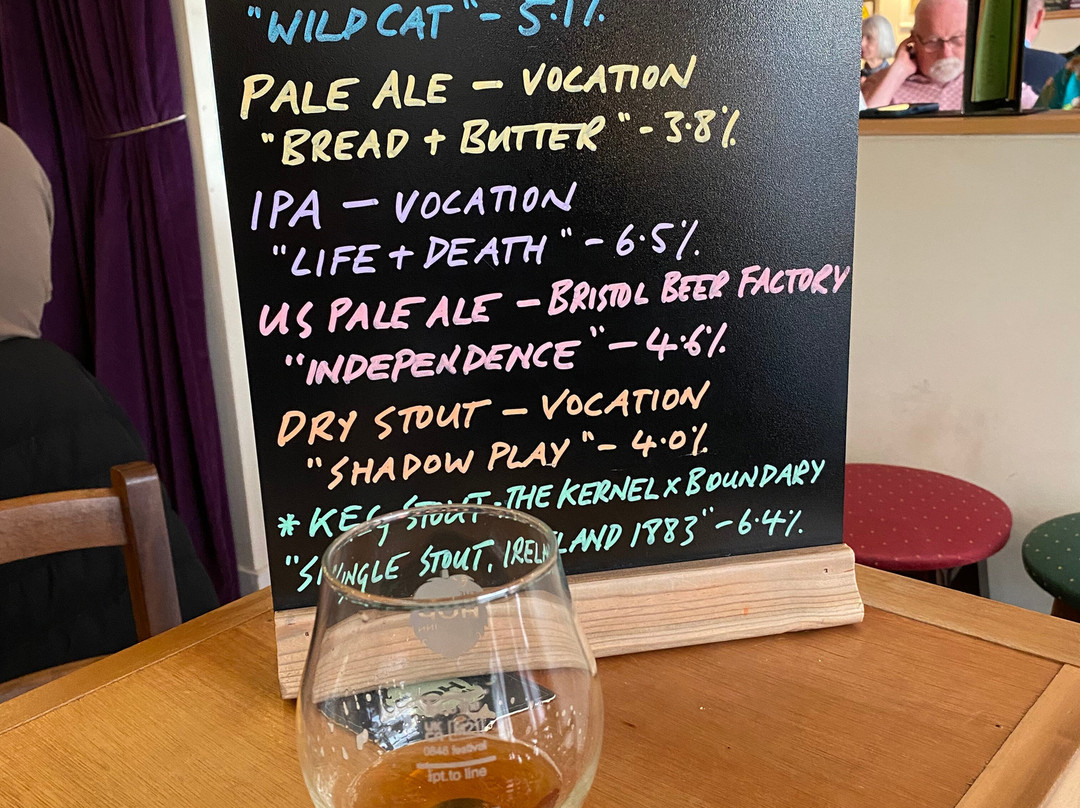 "WILD CAT" - 5.1%
PALE ALE - VOCATION
"BREAD + BUTTER" - 3.8%
IPA - VOCATION
"LIFE + DEATH" - 6.5%
US PALE ALE - BRISTOL BEER FACTORY
"INDEPENDENCE" - 4.6%
DRY STOUT - VOCATION
"SHADOW PLAY" - 4.0%
*KEG STOUT - THE KERNEL X BOUNDARY
STOUT, IRELAND 1883" - 6.4%
HOP
0846 festival
1pt.to line